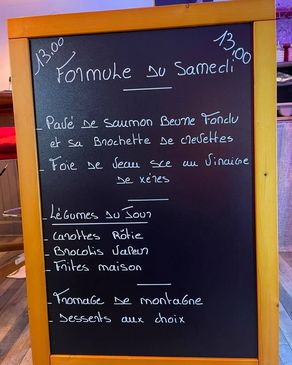 13,00
13,00
Formule du Samedi
- Pavé de Saumon Beurre Fondu
et sa Brochette de crevettes
- Foie de Veau sce au Vinaigre
de xéres
Légumes du Jour
- Carottes Rôtie
- Brocolis Vapeur
- Frites maison
- Fromage de montagne
- Desserts aux choix